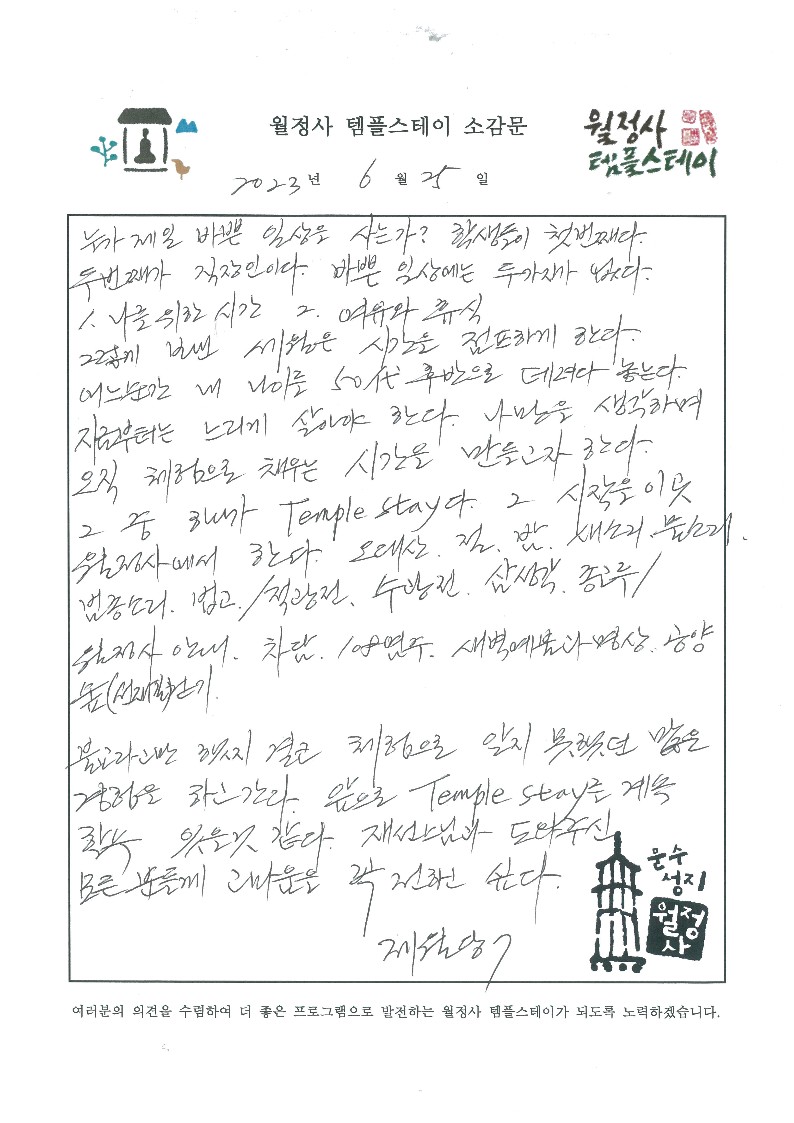 월정사 템플스테이 소감문
월정사
템플스테이
2023년 6월 25일
누가 제일 바쁜 일상을 사는가? 학생들이 첫번째다.
두번째가 직장인이다. 바쁜 일상에는 두가지가 없다.
1. 나를 위한 시간 2. 여유와 휴식
그렇게 보낸 세월은 시간을 점프하게 한다.
어느순간 내 나이를 50代 후반으로 데려다 놓는다.
지금부터는 느리게 살아야 한다. 나만을 생각하며
오직 체험으로 채우는 시간을 만들고자 한다.
그 중 하나가 Temple stay다. 그 시작을 이곳
월정사에서 한다. 오대산. 절. 밤. 새소리. 물소리.
범종소리. 법고. /적광전. 수광전. 삼성각. 종고루/
월정사 안내. 차담. 108염주. 새벽예불과 명상. 공양
숲(선재길)걷기.
불교라고만 했지 결코 체험으로 알지 못했던 많은
경험을 하고 간다. 앞으로 Temple stay를 계속
할수 있을것 같다. 도와주신
모든 분들께 고마움을 꼭 전하고 싶다.
제월당 7
문수
성지
월정
사
여러분의 의견을 수렴하여 더 좋은 프로그램으로 발전하는 월정사 템플스테이가 되도록 노력하겠습니다.